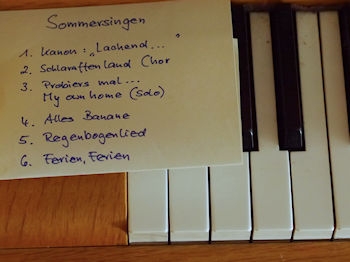 Sommersingen
1. Kanon: „Lachend..."
2. Schlaraffenland Chor
3. Probiers mal...
My own home (Solo)
4. Alles Banane
5. Regenbogenlied
6. Ferien, Ferien